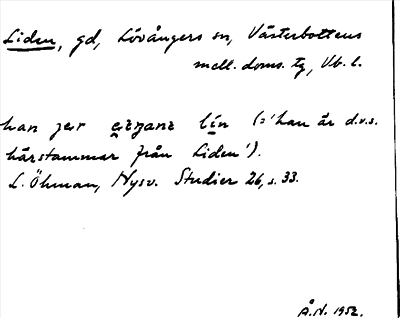 Liden, gd, Lövångers sn, Västerbottens
mell. doms. tg, Vb. l.
han jer
lín (ɔ: 'han är d.v.s.
härstammar från Liden').
L. Öhman, Nysv. Studier 26, s. 33.
Å.N. 1952.